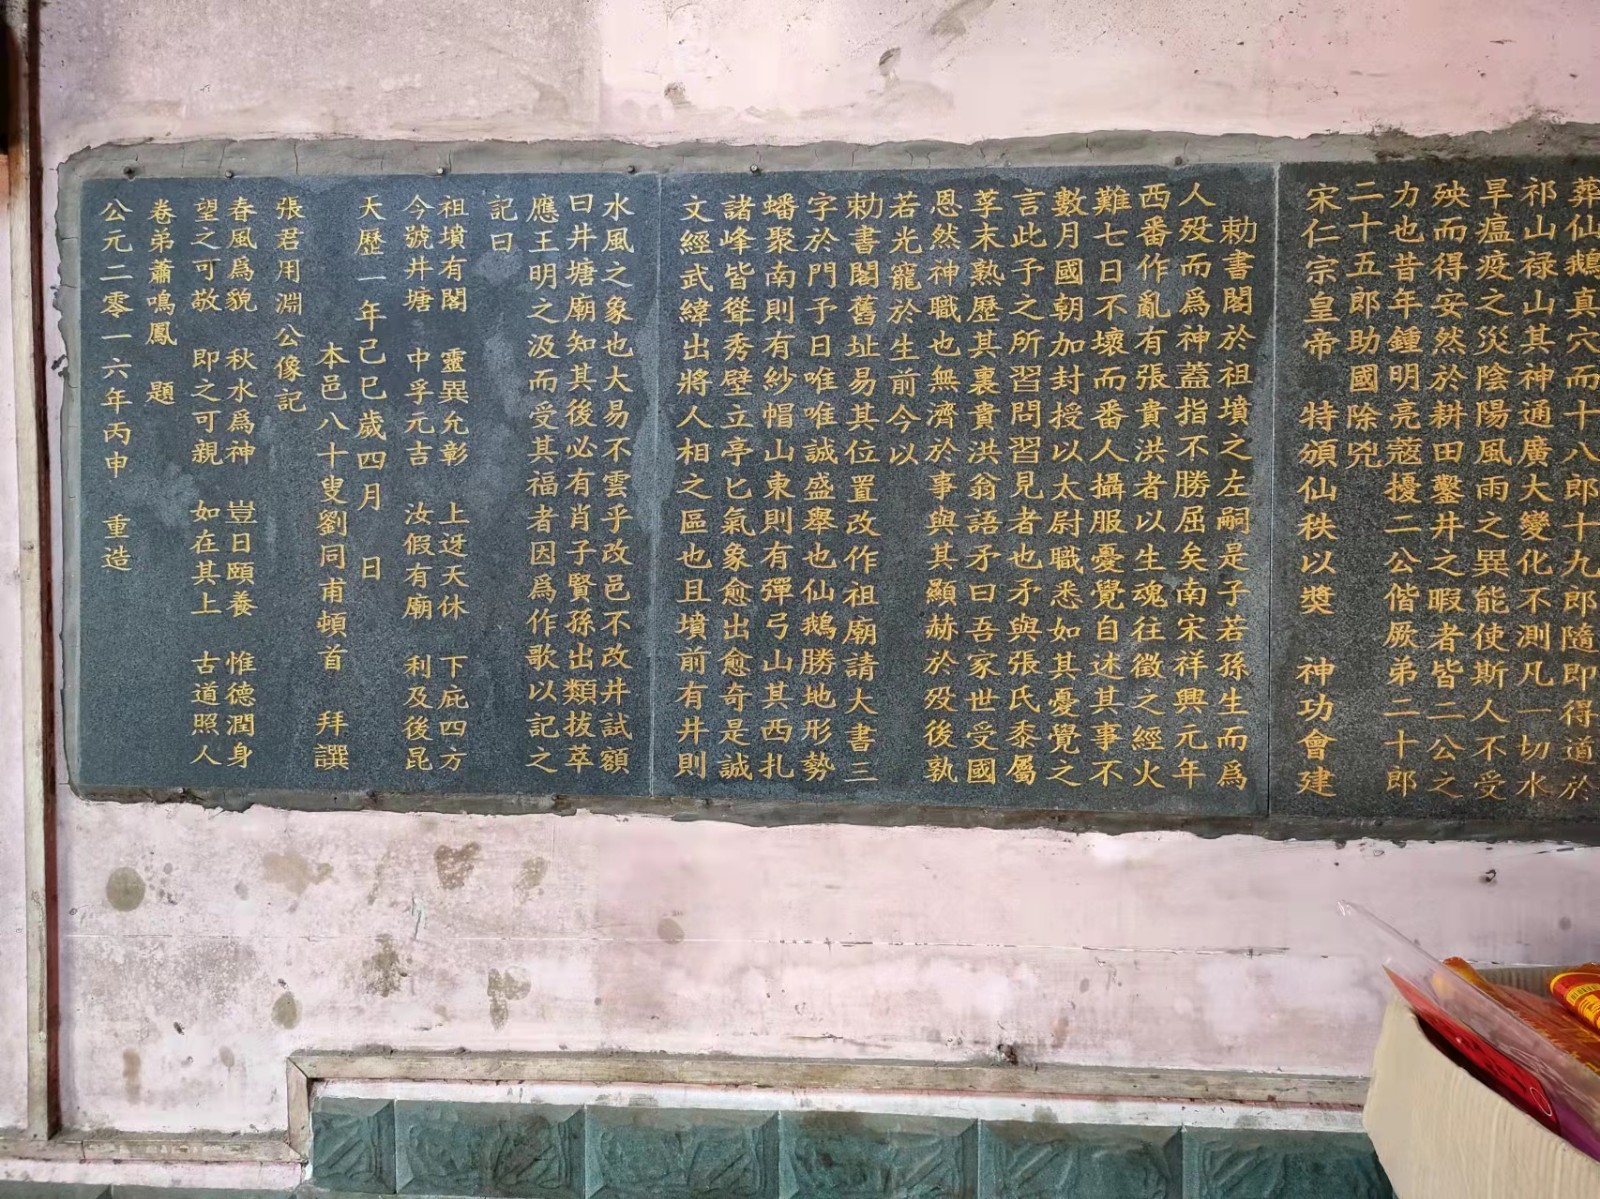 葬仙鵝真穴而十八郎十九郎隨即得道於
祁山禄山其神通廣大變化不測凡一切水
旱瘟疫之災陰陽風雨之異能使斯人不受
殃而得安然於耕田鑿井之暇者皆二公之
力也昔年鍾明亮蔻擾二公偕厥弟二十郎
二十五郎助國除兇
宋仁宗皇帝 特頒仙秩以獎 神功會建
勅書閣於祖墳之左嗣是子若孫生而爲
人殁而爲神蓋指不勝屈矣南宋祥興元年
西番作亂有張貴洪者以生魂往徵之經火
難七日不壞而番人攝服憂覺自述其事不
數月國朝加封授以太尉職悉如其憂覺之
言此予之所習問習見者也矛與張氏黍屬
莩末熟歷其裏貴洪翁語矛曰吾家世受國
恩然神職也無濟於事與其顯赫於殁後孰
若光寵於生前今以
勅書閣舊址易其位置改作祖廟請大書三
字於門予日唯唯誠盛舉也仙鵝勝地形勢
蟠聚南則有紗帽山東則有彈弓山其西扎
諸峰皆聳秀壁立亭匕氣象愈出愈奇是誠
文經武緯出將人相之區也且墳前有井則
水風之象也大易不雲乎改邑不改井試額
曰井塘廟知其後必有肖子賢孫出類拔萃
應王明之汲而受其福者因爲作歌以記之
記曰
祖墳有閣 靈異允彰 上迓天休 下庇四方
今號井塘 中孚元吉 汝假有廟 利及後昆
天歷一年己巳歲四月 日
本邑八十叟劉同甫頓首 拜譔
張君用淵公像記
春風爲貌 秋水爲神 豈日頤養 惟德潤身
望之可敬 即之可親 如在其上 古道照人
卷弟蕭鳴鳳 題
公元二零一六年丙申 重造